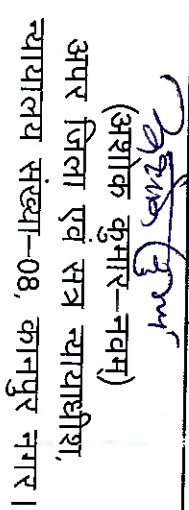 (अशोक कुमार-नवम)
अपर जिला एवं सत्र न्यायाधीश,
न्यायालय संख्या-08, कानपुर नगर।